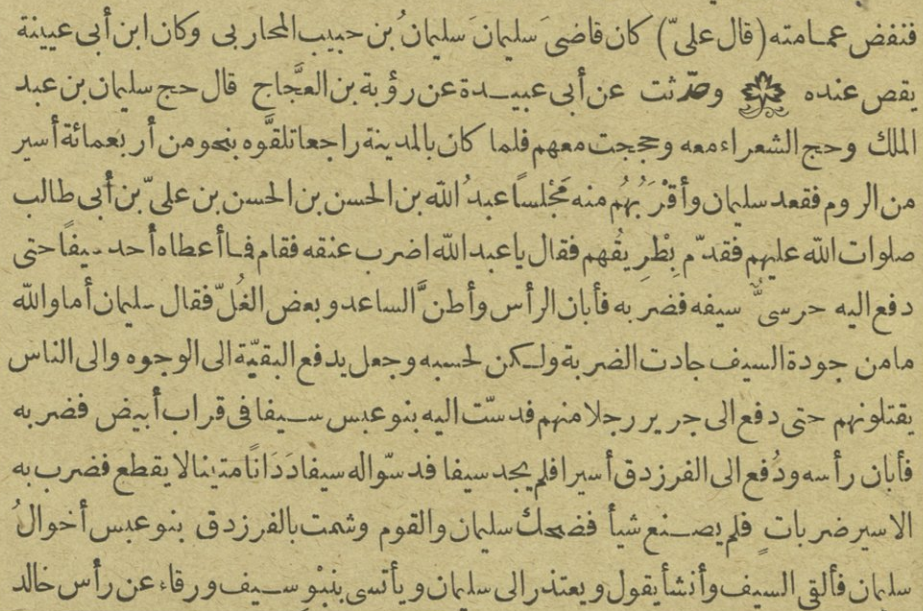 فنفض عمامته (قال علىّ) كان قاضىَ سليمانَ سليمانُ بن حبيب المحاربى وكان ابن أبى عيينة
يقص عنده وحدّثت عن أبى عبيدة عن رؤبة بن العجَّاج قال حج سليمان بن عبد
الملك وحج الشعراء معه وحججت معهم فلما كان بالمدينة راجعا تلقَّوه بنحو من أربعمائة أسير
من الروم فقعد سليمان وأقْرَبُهُم منه مَجْلسًا عبدُ الله بن الحسن بن الحسن بن علىّ بن أبى طالب
صلوات الله عليهم فقدّم بِطْرِيقُهم فقال يا عبد الله اضرب عنقه فقام فما أعطاه أحد سيفًا حتى
دفع اليه حرسىٌّ سيفه فضربه فأبان الرأس وأطنَّ الساعد وبعض الغُلّ فقال سليمان أما والله
ما من جودة السيف جادت الضربة ولكن لحسبه وجعل يدفع البقيّة الى الوجوه والى الناس
يقتلونهم حتى دفع الى جرير رجلا منهم فدسّت اليه بنو عبس سيفا فى قراب أبيض فضربه
فأبان رأسه ودُفع الى الفرزدق أسيرا فلم يجد سيفا فدسّوا له سيفا دَدَانًا متينا لا يقطع فضرب به
الاسير ضرباتٍ فلم يصنع شيأ فضحك سليمان والقوم وشمت بالفرزدق بنو عبس أخوالُ
سليمان فألقى السيف وأنشأ يقول ويعتذر الى سليمان ويأتسى بنبْوِ سيف ورقاء عن رأس خالد